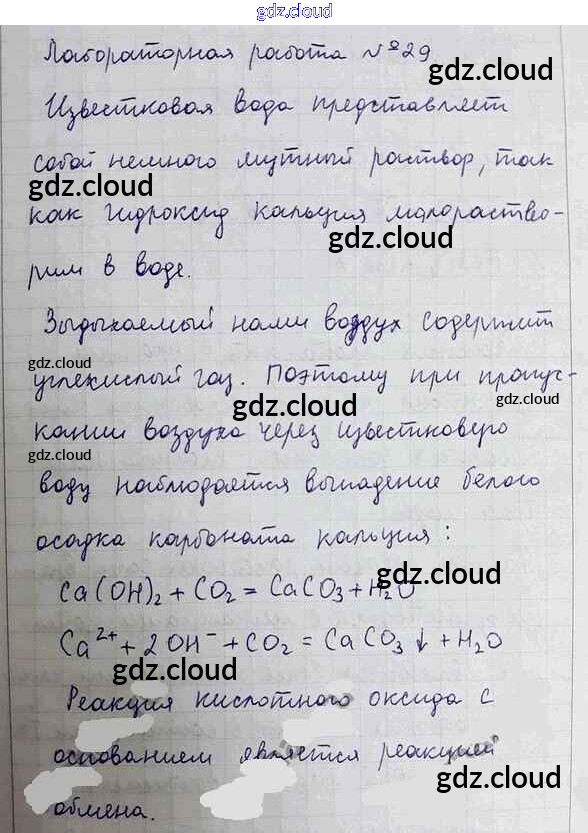 gdz.cloud
Лабораторная работа №29
gdz.cloud
Известковая вода представляет
собой немного мутный раствор, так
gdz.cloud
как гидроксид кальция малораство-
gdz.cloud
рим в воде.
Выдыхаемый нами воздух содержит
gdz.cloud
углекислый газ. Поэтому при пропус-
gdz.cloud
gdz.cloud
кании воздуха через известковую
gdz.cloud
воду наблюдается выпадение белого
осадка карбоната кальция:
gdz.cloud
Ca(OH)₂ + CO₂ = CaCO₃ + H₂O
Ca²⁺ + 2OH⁻ + CO₂ = CaCO₃↓ + H₂O
gdz.cloud
Реакция кислотного оксида с
основанием является реакцией
gdz.cloud
обмена.